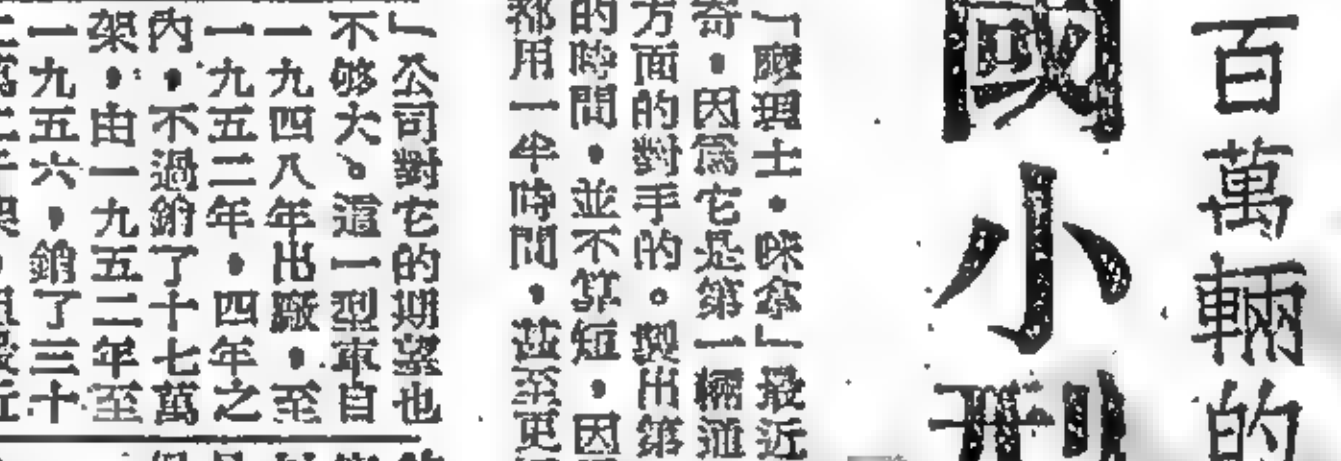 百萬輛的
國小型
「摩理士・咪拿」最近
奇・因爲它是第一輛
方面的對手的。製出第
的時間・並不算短・因
都用一半時間・甚至更
」公司對它的期望也
不够大。這一型車自
一九四八年出廠・至
一九五二年・四年之
內・不過銷了十七萬
架・由一九五二年至
一九五六・銷了三十